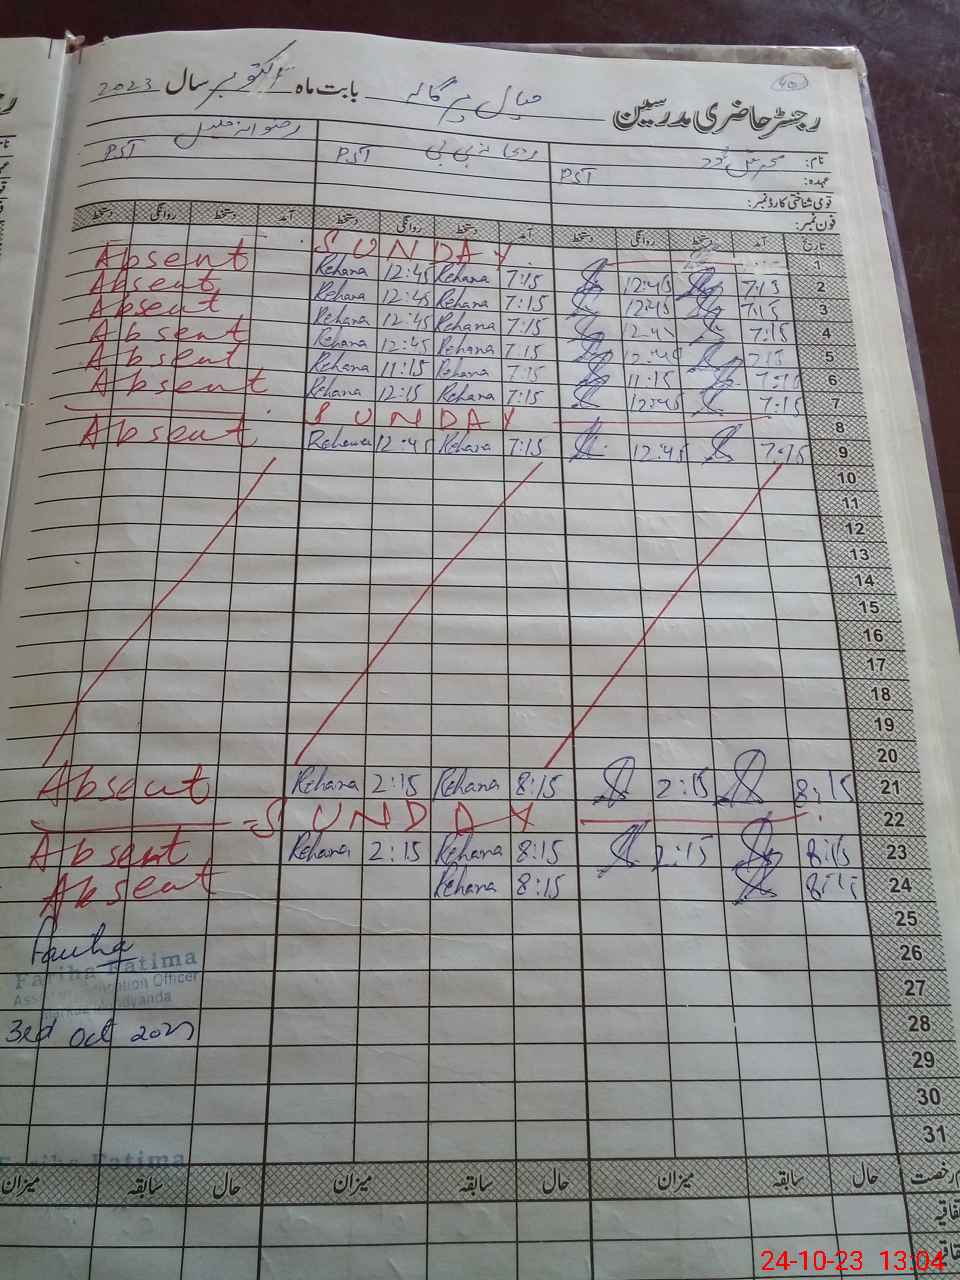 40
رجسٹر حاضری مدرسین بابت ماہ اکتوبر سال 2023
نام:
عہدہ: PST PST PST
قومی شناختی کارڈ نمبر:
فون نمبر:
تاریخ آمد دستخط روانگی دستخط آمد دستخط روانگی دستخط آمد دستخط روانگی دستخط
Absent SUNDAY 1
Absent Rehana 12:45 Rehana 7:15 12:45 7:15 2
Absent Rehana 12:45 Rehana 7:15 12:45 7:15 3
Absent Rehana 12:45 Rehana 7:15 12:45 7:15 4
Absent Rehana 12:45 Rehana 7:15 12:45 7:15 5
Absent Rehana 11:15 Rehana 7:15 11:15 7:15 6
Rehana 12:15 Rehana 7:15 12:45 7:15 7
SUNDAY 8
Absent Rehana 12:45 Rehana 7:15 12:45 7:15 9
10
11
12
13
14
15
16
17
18
19
20
Absent Rehana 2:15 Rehana 8:15 2:15 8:15 21
SUNDAY 22
Absent Rehana 2:15 Rehana 8:15 2:15 8:15 23
Absent Rehana 8:15 8:15 24
25
Fariha 26
Fariha Fatima
Assistant Education Officer 27
3rd Oct 2023 28
29
30
31
Fariha Fatima
رخصت حال سابقہ میزان حال سابقہ میزان حال سابقہ میزان
24-10-23 13:04